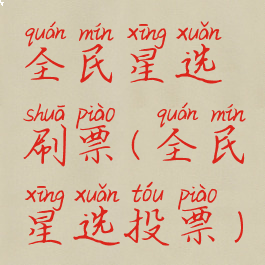 quán mín xīng xuǎn
全民星选
shuā piào quán mín
刷票(全民
xīng xuǎn tóu piào
星选投票)